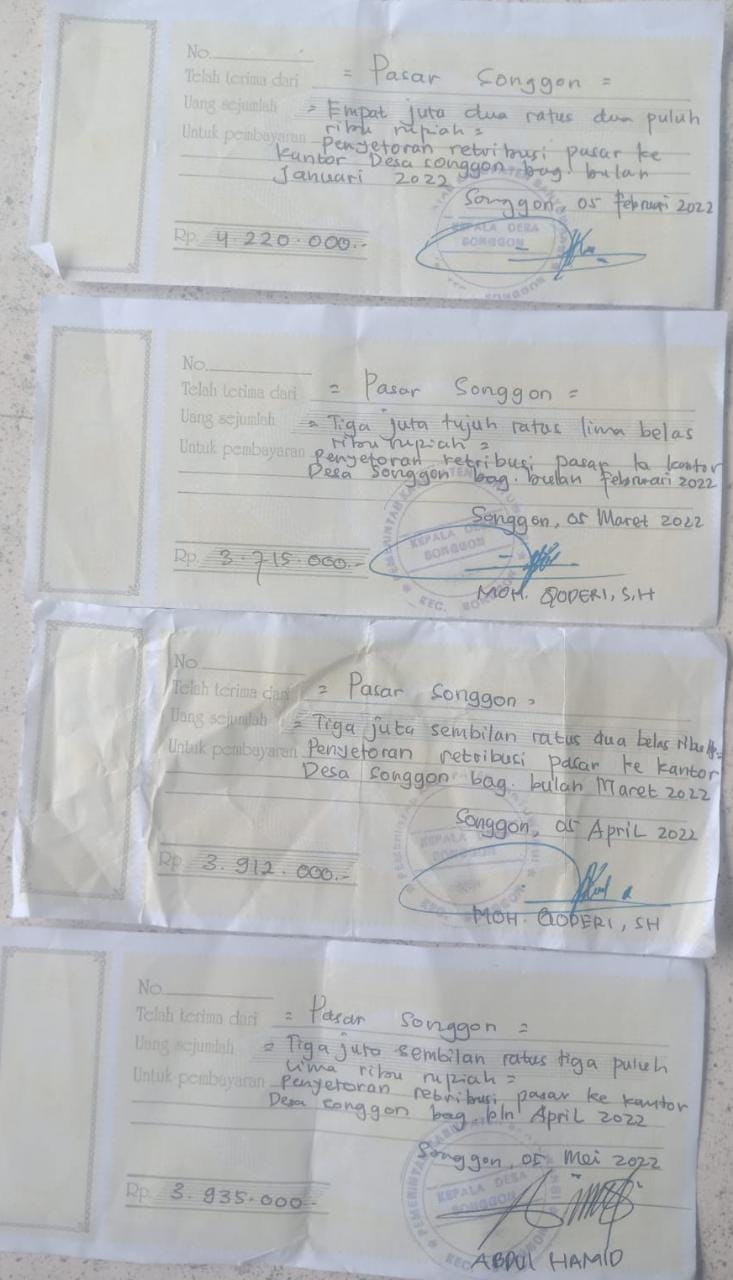 No.
Telah terima dari = Pasar Songgon =
Uang sejumlah = Empat juta dua ratus dua puluh
ribu rupiah =
Untuk pembayaran Penyetoran retribusi pasar ke
kantor Desa songgon bag. bulan
Januari 2022
Songgon, 05 Februari 2022
KEPALA DESA
SONGGON
Rp. 4.220.000.-
No.
Telah terima dari = Pasar Songgon =
Uang sejumlah = Tiga juta tujuh ratus lima belas
ribu rupiah =
Untuk pembayaran penyetoran retribusi pasar ke kantor
Desa Songgon bag. bulan Februari 2022
Songgon, 05 Maret 2022
KEPALA DESA
SONGGON
KEC. SONGGON
Rp. 3.715.000.-
MOH. QODERI, S.H
No.
Telah terima dari = Pasar Songgon =
Uang sejumlah = Tiga juta sembilan ratus dua belas ribu
Untuk pembayaran Penyetoran retribusi pasar ke kantor
Desa Songgon bag. bulan Maret 2022
Songgon, 05 April 2022
KEPALA
Rp. 3.912.000.-
MOH. QODERI, SH
No.
Telah terima dari = Pasar Songgon =
Uang sejumlah = Tiga juta sembilan ratus tiga puluh
lima ribu rupiah =
Untuk pembayaran penyetoran retribusi pasar ke kantor
Desa Songgon bag. bln April 2022
Songgon, 05 Mei 2022
KEPALA DESA
SONGGON
Rp. 3.935.000-
ABDUL HAMID